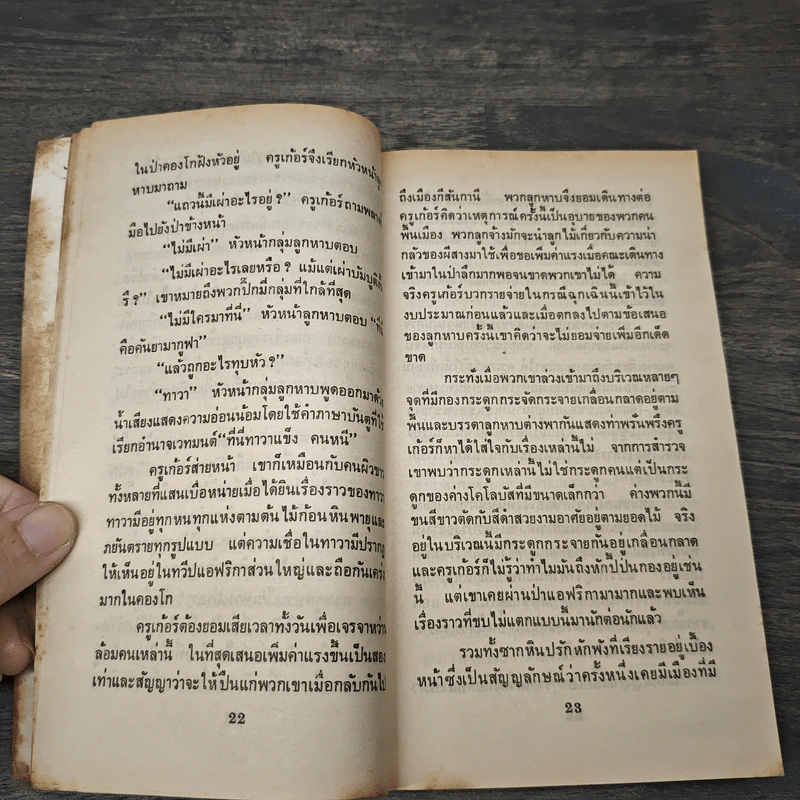 ในป่าคองโกฝังหัวอยู่ ครูเก้อร์จึงเรียกหัวหน้าลูก
หาบมาถาม
“แถวนี้มีเผ่าอะไรอยู่?” ครูเก้อร์ถามพลาง
มือไปยังป่าข้างหน้า
“ไม่มีเผ่า” หัวหน้ากลุ่มลูกหาบตอบ
“ไม่มีเผ่าอะไรเลยหรือ? แม้แต่เผ่าบัมบูตี
รึ?” เขาหมายถึงพวกปิ๊กมี่กลุ่มที่ใกล้ที่สุด
“ไม่มีใครมาที่นี่” หัวหน้าลูกหาบตอบ “ที่นี่
คือคันยามากูฟา”
“แล้วถูกอะไรทุบหัว?”
“ทาวา” หัวหน้ากลุ่มลูกหาบพูดออกมาด้วย
น้ำเสียงแสดงความอ่อนน้อมโดยใช้คำภาษาบันตูที่ใช้
เรียกอำนาจเวทมนต์ “ที่นี่ทาวาแข็ง คนหนี”
ครูเก้อร์ส่ายหน้า เขาก็เหมือนกับคนผิวขาว
ทั้งหลายที่แสนเบื่อหน่ายเมื่อได้ยินเรื่องราวของทาวา
ทาวามีอยู่ทุกหนทุกแห่งตามต้นไม้ก้อนหินพายุและ
ภยันตรายทุกรูปแบบ แต่ความเชื่อในทาวามีปรากฏ
ให้เห็นอยู่ในทวีปแอฟริกาส่วนใหญ่และถือกันเคร่ง
มากในคองโก
ครูเก้อร์ต้องยอมเสียเวลาทั้งวันเพื่อเจรจาหว่าน
ล้อมคนเหล่านี้ ในที่สุดเสนอเพิ่มค่าแรงขึ้นเป็นสอง
เท่าและสัญญาว่าจะให้ปืนแก่พวกเขาเมื่อกลับกันไป
22
ถึงเมืองกีสันกานี พวกลูกหาบจึงยอมเดินทางต่อ
ครูเก้อร์คิดว่าเหตุการณ์ครั้งนี้เป็นอุบายของพวกคน
พื้นเมือง พวกลูกจ้างมักจะนำลูกไม้เกี่ยวกับความน่า
กลัวของผีสางมาใช้เพื่อขอเพิ่มค่าแรงเมื่อคณะเดินทาง
เข้ามาในป่าลึกมากพอจนขาดพวกเขาไม่ได้ ความ
จริงครูเก้อร์บวกรายจ่ายในกรณีฉุกเฉินนี้เข้าไว้ใน
งบประมาณก่อนแล้วและเมื่อตกลงไปตามข้อเสนอ
ของลูกหาบครั้งนี้เขาคิดว่าจะไม่ยอมจ่ายเพิ่มอีกเด็ด
ขาด
กระทั่งเมื่อพวกเขาล่วงเข้ามาถึงบริเวณหลายๆ
จุดที่มีกองกระดูกกระจัดกระจายเกลื่อนกลาดอยู่ตาม
พื้นและบรรดาลูกหาบต่างพากันแสดงท่าพรั่นพรึงครู
เก้อร์ก็หาได้ใส่ใจกับเรื่องเหล่านี้ไม่ จากการสำรวจ
เขาพบว่ากระดูกเหล่านี้ไม่ใช่กระดูกคนแต่เป็นกระ
ดูกของค่างโคโลบัสที่มีขนาดเล็กกว่า ค่างพวกนี้มี
ขนสีขาวตัดกับสีดำสวยงามอาศัยอยู่ตามยอดไม้ จริง
อยู่ในบริเวณนี้มีกระดูกกระจายกันอยู่เกลื่อนกลาด
และครูเก้อร์ก็ไม่รู้ว่าทำไมมันถึงหักปี้ป่นกองอยู่เช่น
นี้ แต่เขาเคยผ่านป่าแอฟริกามามากและพบเห็น
เรื่องราวที่ขบไม่แตกแบบนี้มานักต่อนักแล้ว
รวมทั้งซากหินปรักหักพังที่เรียงรายอยู่เบื้อง
หน้าซึ่งเป็นสัญญลักษณ์ว่าครั้งหนึ่งเคยมีเมืองที่มี
23